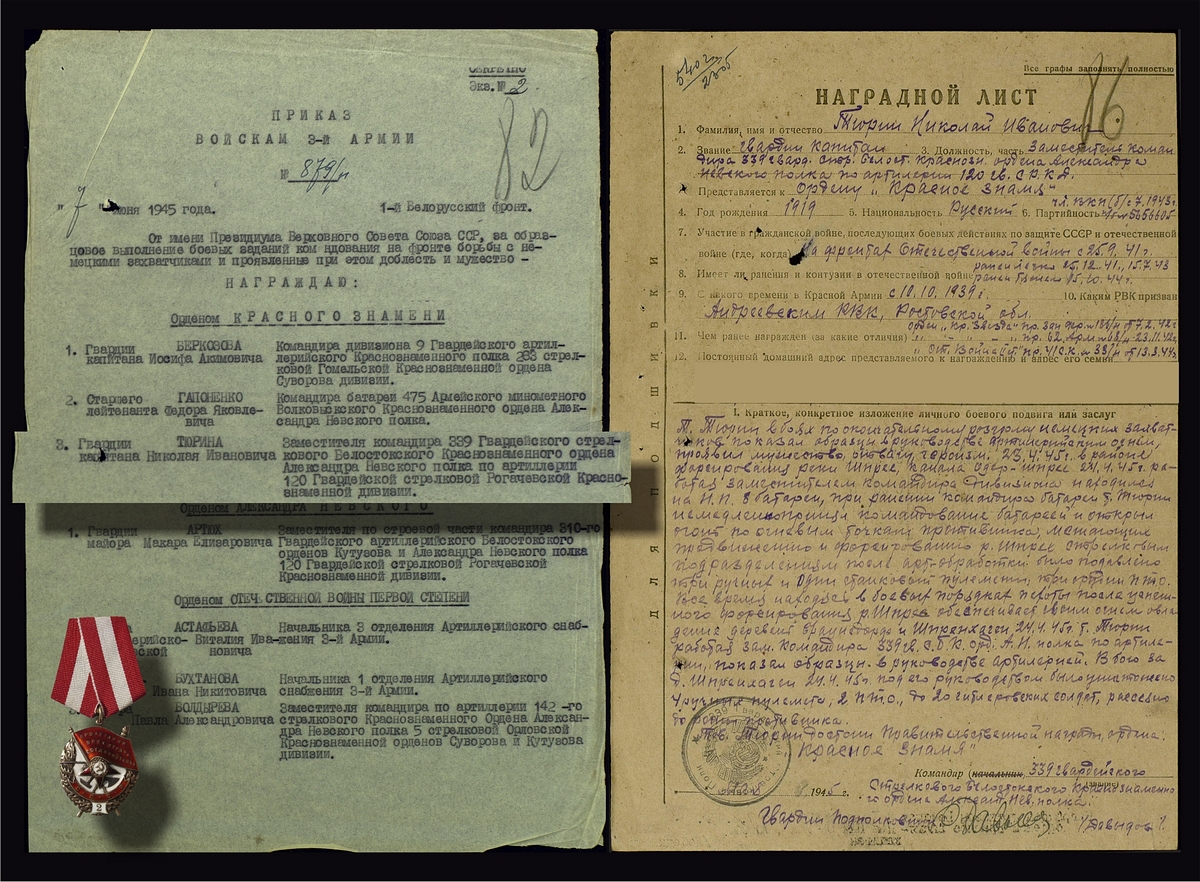 СЕКРЕТНО
Экз.№ 2
82
ПРИКАЗ
ВОЙСКАМ 3-й АРМИИ
№ 879/н
"7" июня 1945 года. 1-й Белорусский фронт.
От имени Президиума Верховного Совета Союза ССР, за образ-
цовое выполнение боевых заданий командования на фронте борьбы с не-
мецкими захватчиками и проявленные при этом доблесть и мужество -
НАГРАЖДАЮ:
Орденом КРАСНОГО ЗНАМЕНИ
1. Гвардии БЕРКОЗОВА Командира дивизиона 9 Гвардейского артил-
капитана Иосифа Акимовича лерийского Краснознаменного полка 283 стрел-
ковой Гомельской Краснознаменной ордена
Суворова дивизии.
2. Старшего ГАПОНЕНКО Командира батареи 475 Армейского минометного
лейтенанта Федора Яковле- Волковысского Краснознаменного ордена Алек-
вича сандра Невского полка.
3. Гвардии ТЮРИНА Заместителя командира 339 Гвардейского стрел-
капитана Николая Ивановича кового Белостокского Краснознаменного ордена
Александра Невского полка по артиллерии
120 Гвардейской стрелковой Рогачевской Красно-
знаменной дивизии.
Орденом АЛЕКСАНДРА НЕВСКОГО
1. Гвардии АРТЮХ Заместителя по строевой части командира 310-го
майора Макара Елизаровича Гвардейского артиллерийского Белостокского
орденов Кутузова и Александра Невского полка
120 Гвардейской стрелковой Рогачевской
Краснознаменной дивизии.
Орденом ОТЕЧЕСТВЕННОЙ ВОЙНЫ ПЕРВОЙ СТЕПЕНИ
АСТАФЬЕВА Начальника 3 отделения Артиллерийского снаб-
Виталия Ива- жения 3-й Армии.
новича
БУХТАНОВА Начальника 1 отделения Артиллерийского
Ивана Никитовича снабжения 3-й Армии.
БОЛДЫРЕВА Заместителя командира по артиллерии 142-го
Павла Александровича стрелкового Краснознаменного Ордена Алексан-
дра Невского полка 5 стрелковой Орловской
Краснознаменной орденов Суворова и Кутузова
дивизии.
2
86
Все графы заполнять полностью
НАГРАДНОЙ ЛИСТ
1. Фамилия, имя и отчество Тюрин Николай Иванович
2. Звание гвардии капитан 3. Должность, часть Заместитель коман
дира 339 гвард. стр. белост. краснозн. ордена Александра
Невского полка по артилерии 120 гв. С.Р.К.Д.
Представляется к ордену „Красное знамя"
4. Год рождения 1919 5. Национальность Русский 6. Партийность чл. ВКП(б) с 7.1943г. 5656605
7. Участие в гражданской войне, последующих боевых действиях по защите СССР и отечественной
войне (где, когда) На фронтах Отечественной войны с 25.9.41г.
8. Имеет ли ранения и контузии в отечественной войне ранен легко 25.12.41, 15.7.43
15.10.44г.
9. С какого времени в Красной Армии с 10.10.1939г. 10. Каким РВК призван
Андреевским РВК, Ростовской обл.
11. Чем ранее награжден (за какие отличия)
12. Постоянный домашний адрес представляемого к награждению и адрес его семьи
ДЛЯ ПОДШИВКИ
I. Краткое, конкретное изложение личного боевого подвига или заслуг
Т. Тюрин в боях по окончательному разгрому немецких захват-
чиков показал образцы в руководстве артилерийским огнем,
проявил мужество, отвагу, героизм. 23.4.45г. в районе
форсирования реки Шпрее, канала Одер-Шпрее 24.4.45г. ра-
ботая заместителем командира дивизиона находился
на Н.П. 8 батареи, при ранении командира батареи т. Тюрин
немедленно принял командование батареей и открыл
огонь по огневым точкам противника, мешающие
продвижению и форсированию р. Шпрее стрелковым
подразделениям после арт-обработки было подавлено
три ручных и один станковый пулемёты, три орудия ПТО.
Все время находясь в боевых порядках пехоты после успеш-
ного форсирования р. Шпрее обеспечивает своим огнем овла-
дение деревень Браунсдорф и Шпренхаген 24.4.45г. т. Тюрин
работая зам. командира 339 гв. С.Б.К. орд. А.Н. полка по артиле-
рии, показал образцы в руководстве артилерией. В бою за
д. Шпренхаген 24.4.45г. под его руководством было уничтожено
4 ручных пулемета, 2 ПТО, до 20 гитлеровских солдат, рассеяно
до роты противника.
Тов. Тюрин достоин Правительственной награды ордена:
„Красное Знамя"
Командир (начальник) 339 гвардейского
Стрелкового Белостокского Краснознаменно
го ордена Александ. Нев. полка.
1945 г.
Гвардии Подполковник /Давыдов/